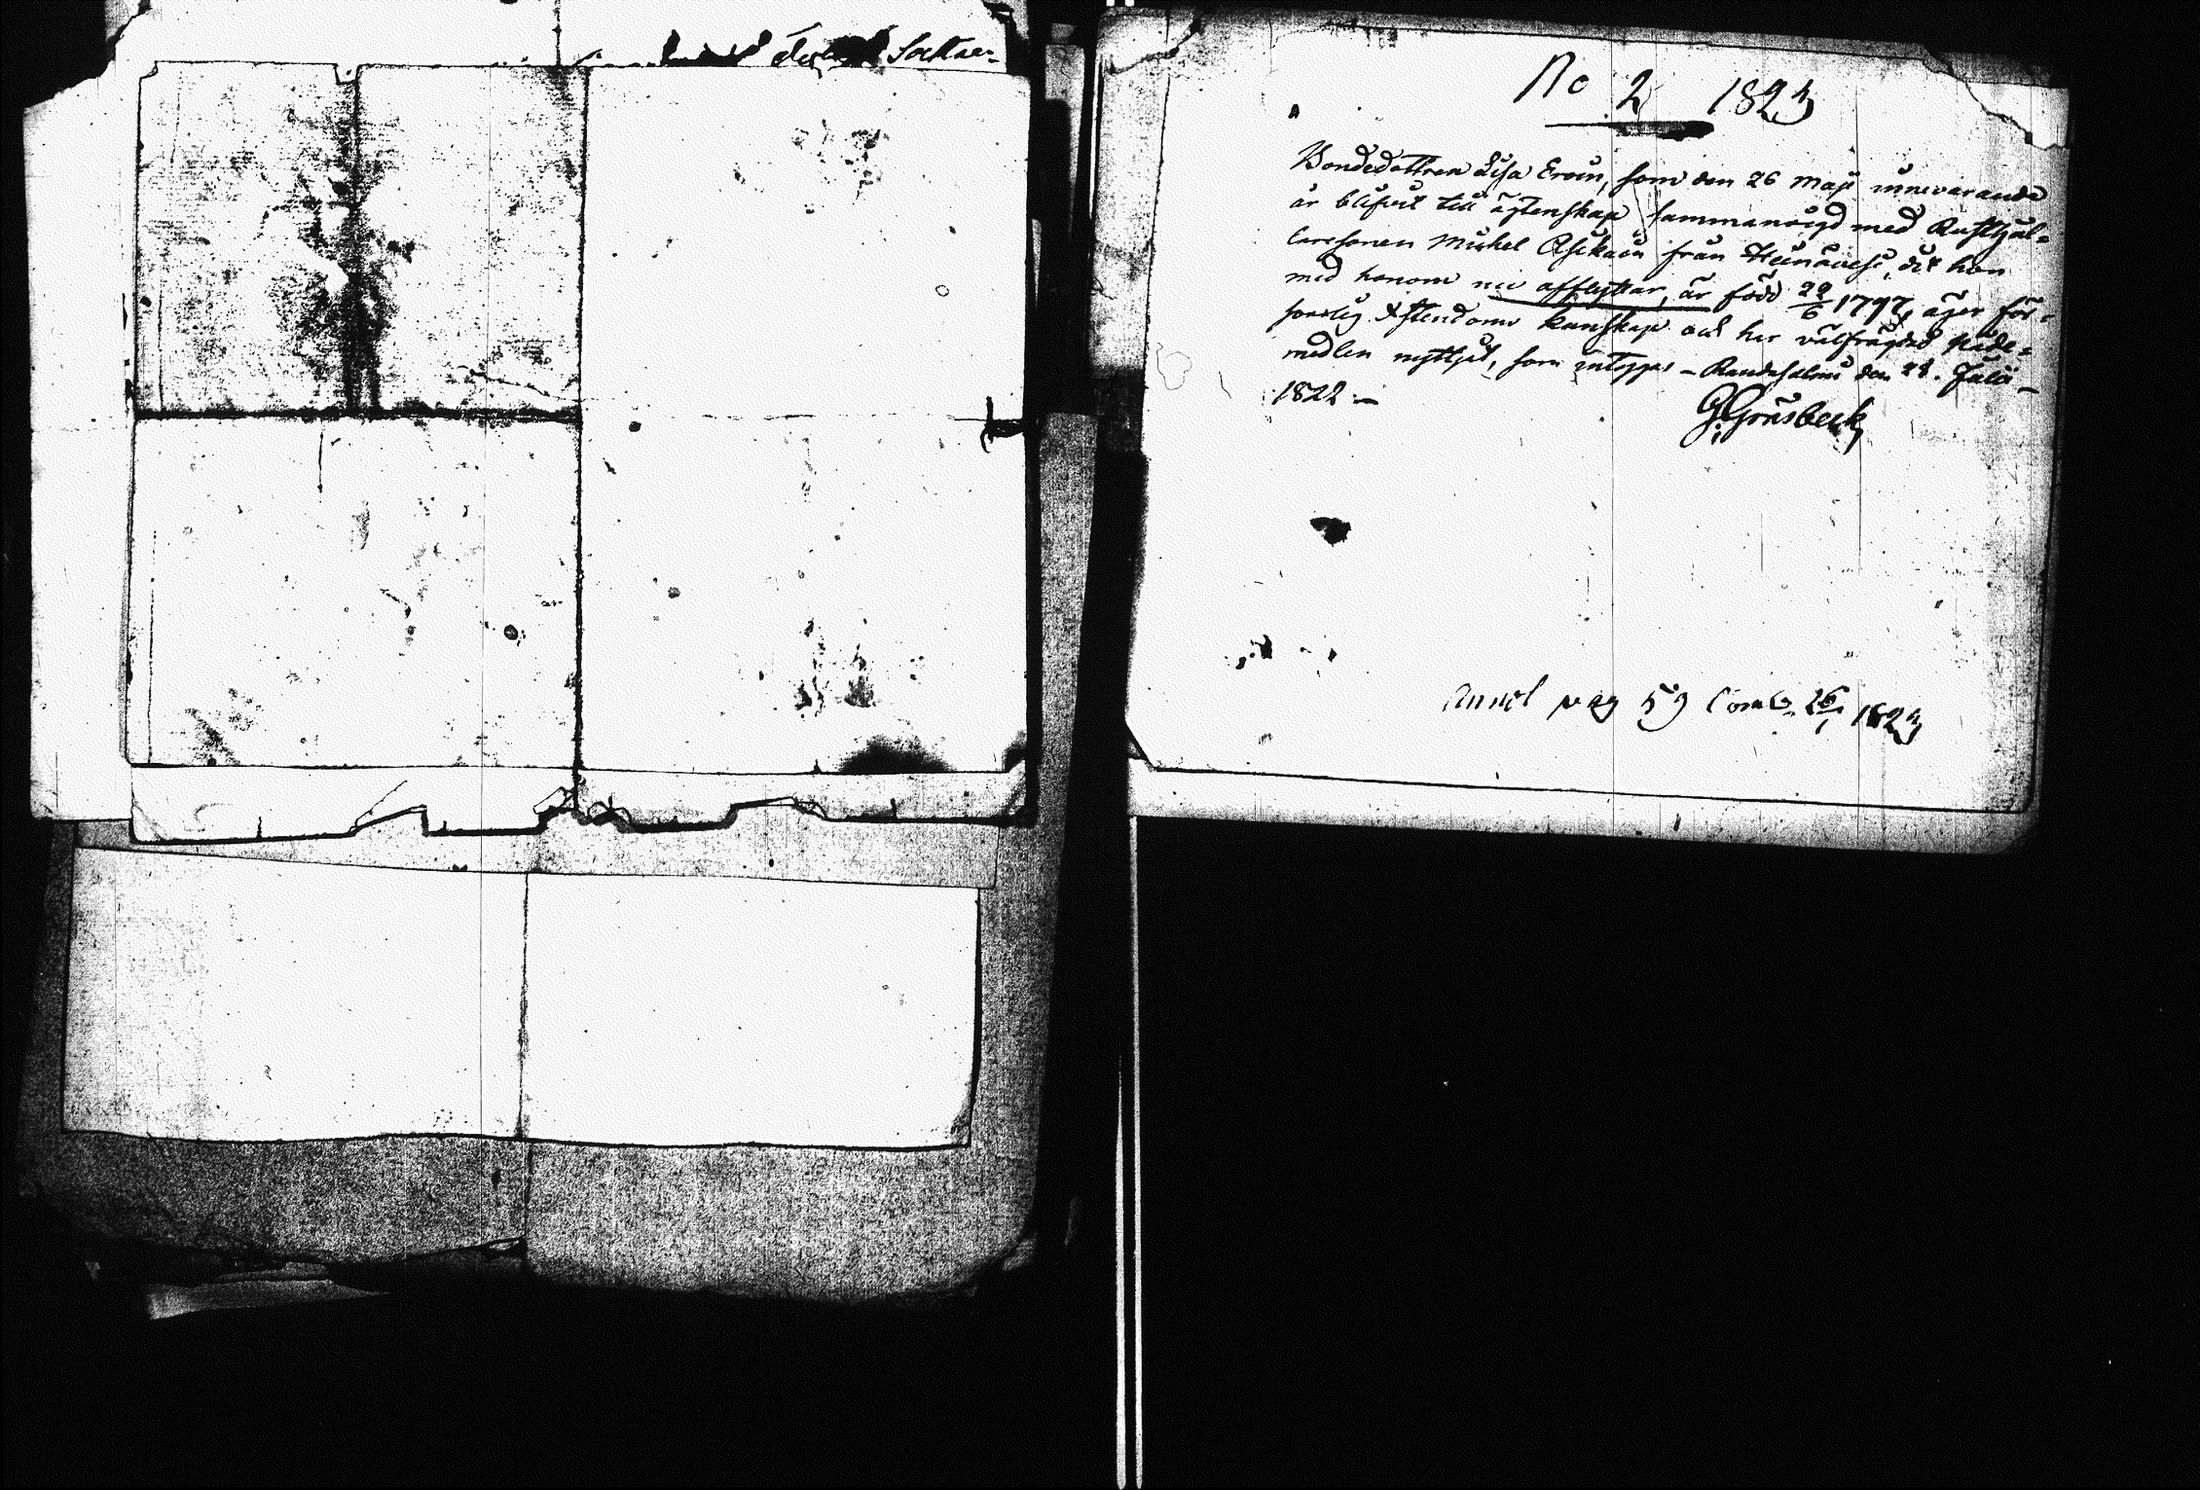 Sattar
No 2 1823
Bondedottren Lisa Eroin, som den 26 Maji innevarande
år blifvit till ägtenskap sammanvigd med Rusthål-
laresonen Michel Asikain från Heinävesi, dit hon
med honom nu afflyttar, är född 29/6 1797, äger för-
svarlig Xstendoms kunskap och har välfrägdad Nåde-
medlen nyttjat, som intygas – Randasalmi den 28. Julii
1822 –
G. Grasbeck
Annot pag 59 Comb. 26/1 1823